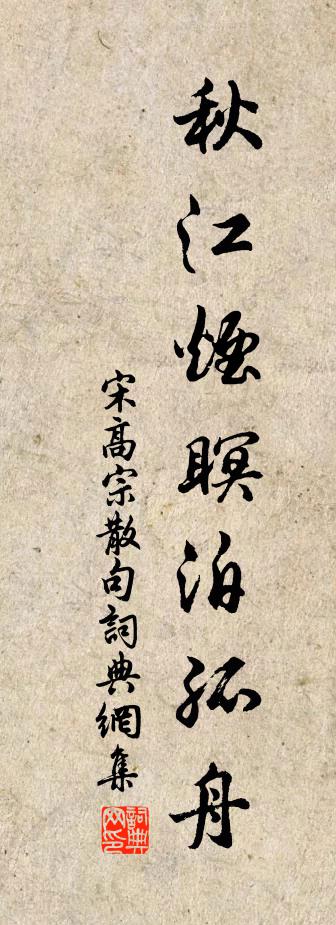 秋江煙暝泊孤舟
宋高宗散句詞典網集
詞典網印